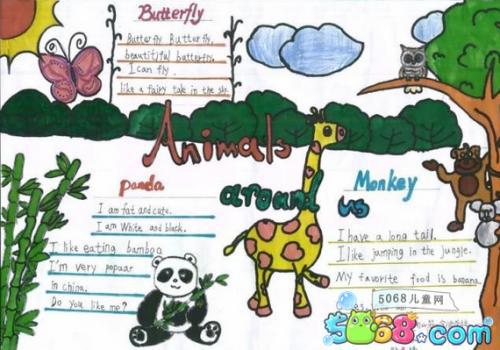 Butterfly
Butterfly Butterfly.
beautitful batterfly.
I can fly.
like a fairy tale in the sky.
Animals
around
us
panda
I am fat and cute.
I am White and black.
I like eating bamboo
I'm very popuar
in china.
Do you like me?
Monkey
I have a long tail.
I like jumping in the jungle.
My favorite food is banana.
5068儿童网
5068.com